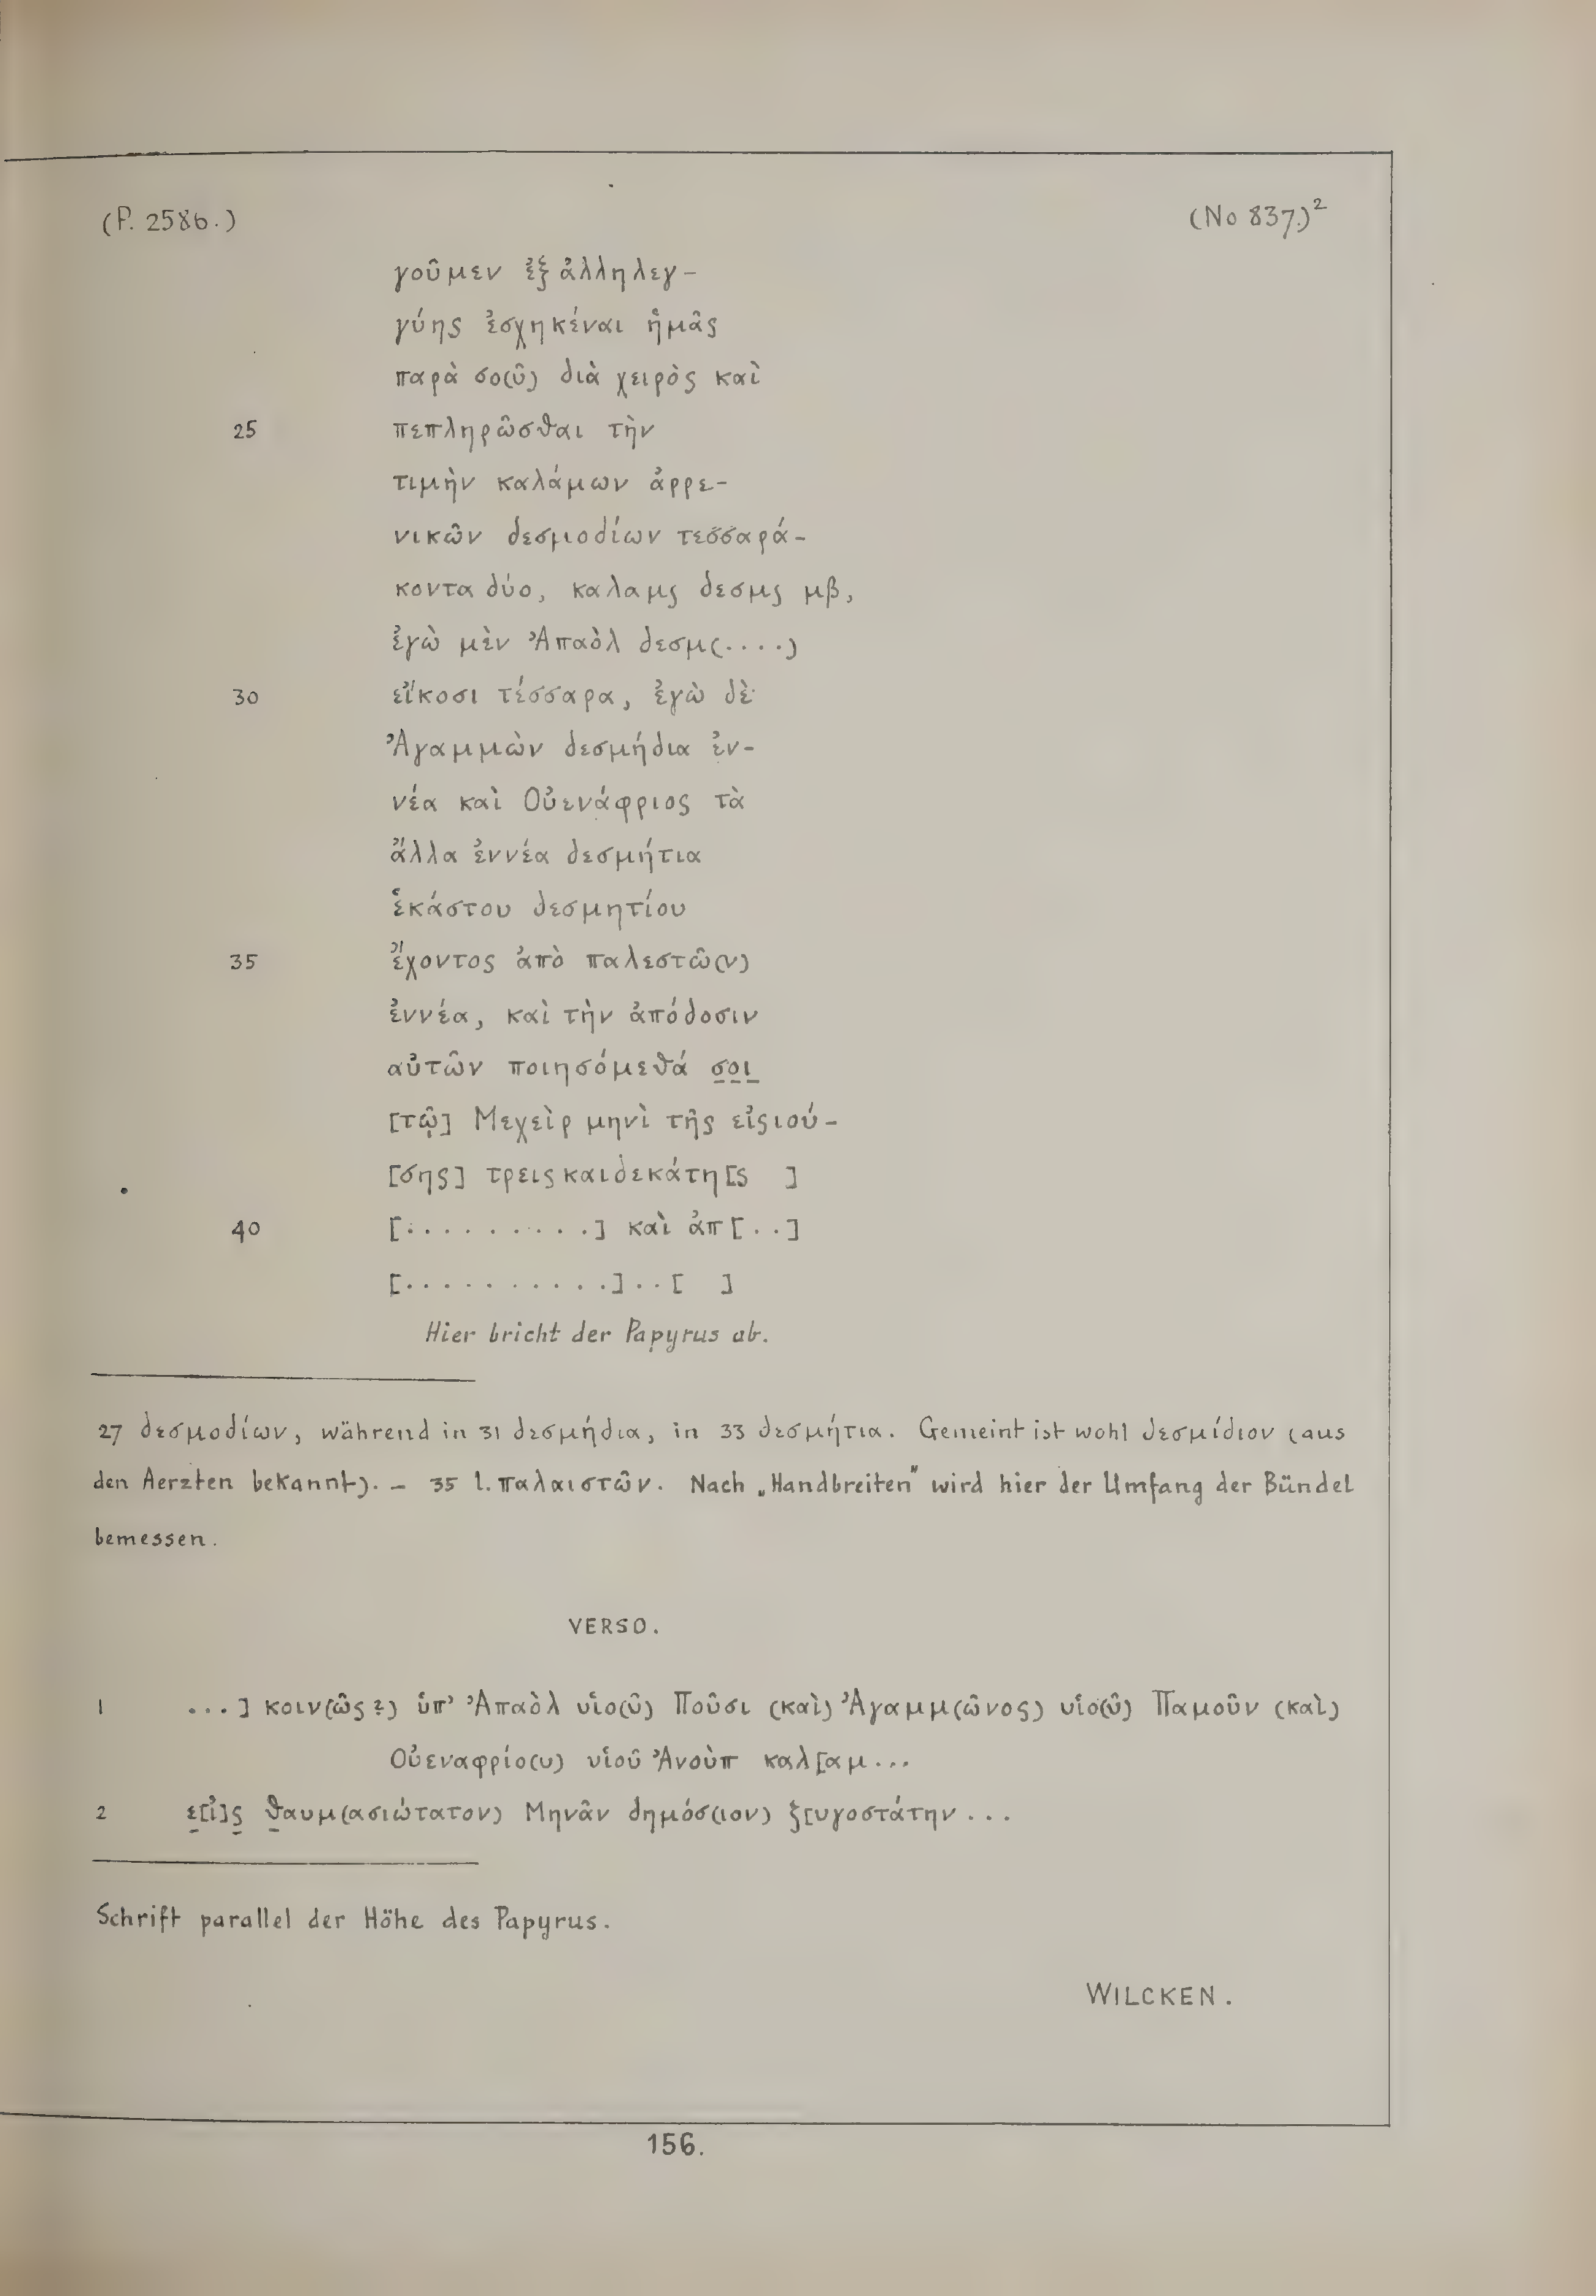 (P. 2586.) (No 837.)²
γοῦμεν ἐξ ἀλληλεγ-
γύης ἐσχηκέναι ἡμᾶς
παρὰ σο(ῦ) διὰ χειρὸς καὶ
25 πεπληρῶσθαι τὴν
τιμὴν καλάμων ἀρρε-
νικῶν δεσμοδίων τεσσαρά-
κοντα δύο, καλαμς δεσμς μβ,
ἐγὼ μὲν Ἀπαὸλ δεσμ(....)
30 εἴκοσι τέσσαρα, ἐγὼ δὲ
Ἀγαμμὼν δεσμήδια ἐν-
νέα καὶ Οὐενάφριος τὰ
ἄλλα ἐννέα δεσμήτια
ἑκάστου δεσμητίου
35 ἔχοντος ἀπὸ παλεστῶ(ν)
ἐννέα, καὶ τὴν ἀπόδοσιν
αὐτῶν ποιησόμεθά σ̣ο̣ι̣
[τῷ] Μεχεὶρ μηνὶ τῆς εἰςιού-
[σης] τρειςκαιδεκάτη[ς ]
40 [..........] καὶ ἀπ[..]
[...........]..[ ]
Hier bricht der Papyrus ab.
27 δεσμοδίων, während in 31 δεσμήδια, in 33 δεσμήτια. Gemeint ist wohl δεσμίδιον (aus
den Aerzten bekannt). — 35 l. παλαιστῶν. Nach „Handbreiten" wird hier der Umfang der Bündel
bemessen.
VERSO.
1 ...] κοιν(ῶς?) ὑπ' Ἀπαὸλ υἱο(ῦ) Ποῦσι (καὶ) Ἀγαμμ(ῶνος) υἱο(ῦ) Παμοῦν (καὶ)
Οὐεναφρίο(υ) υἱοῦ Ἀνοὺπ καλ[αμ...
2 ε̣[ἰ]ς̣ θ̣αυμ(ασιώτατον) Μηνᾶν δημόσ(ιον) ζ[υγοστάτην...
Schrift parallel der Höhe des Papyrus.
WILCKEN.
156.